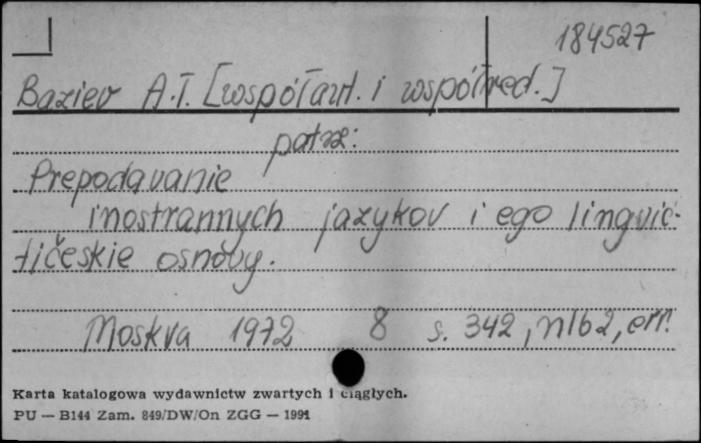 184527
Baziev A.T. [współaut. i współred.]
patrz:
Prepodavanie
inostrannych jazykov i ego lingvis-
tičeskie osnovy.
Moskva 1972 8 s. 342, nlb 2, err.
Karta katalogowa wydawnictw zwartych i ciągłych.
PU — B144 Zam. 849/DW/On ZGG — 1991